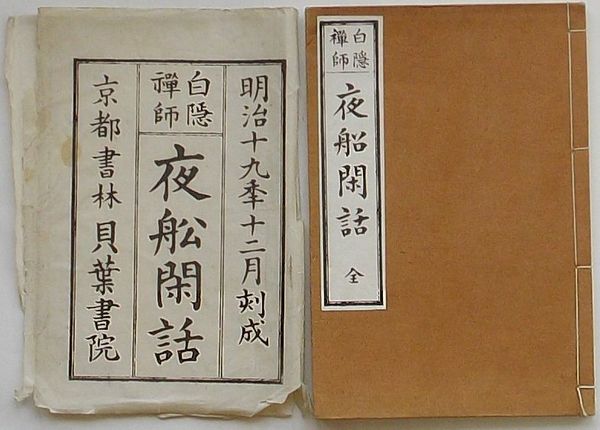 明治十九年十二月刻成
白隱
禪師
夜船閑話
京都書林貝葉書院
白隱
禪師
夜船閑話
全